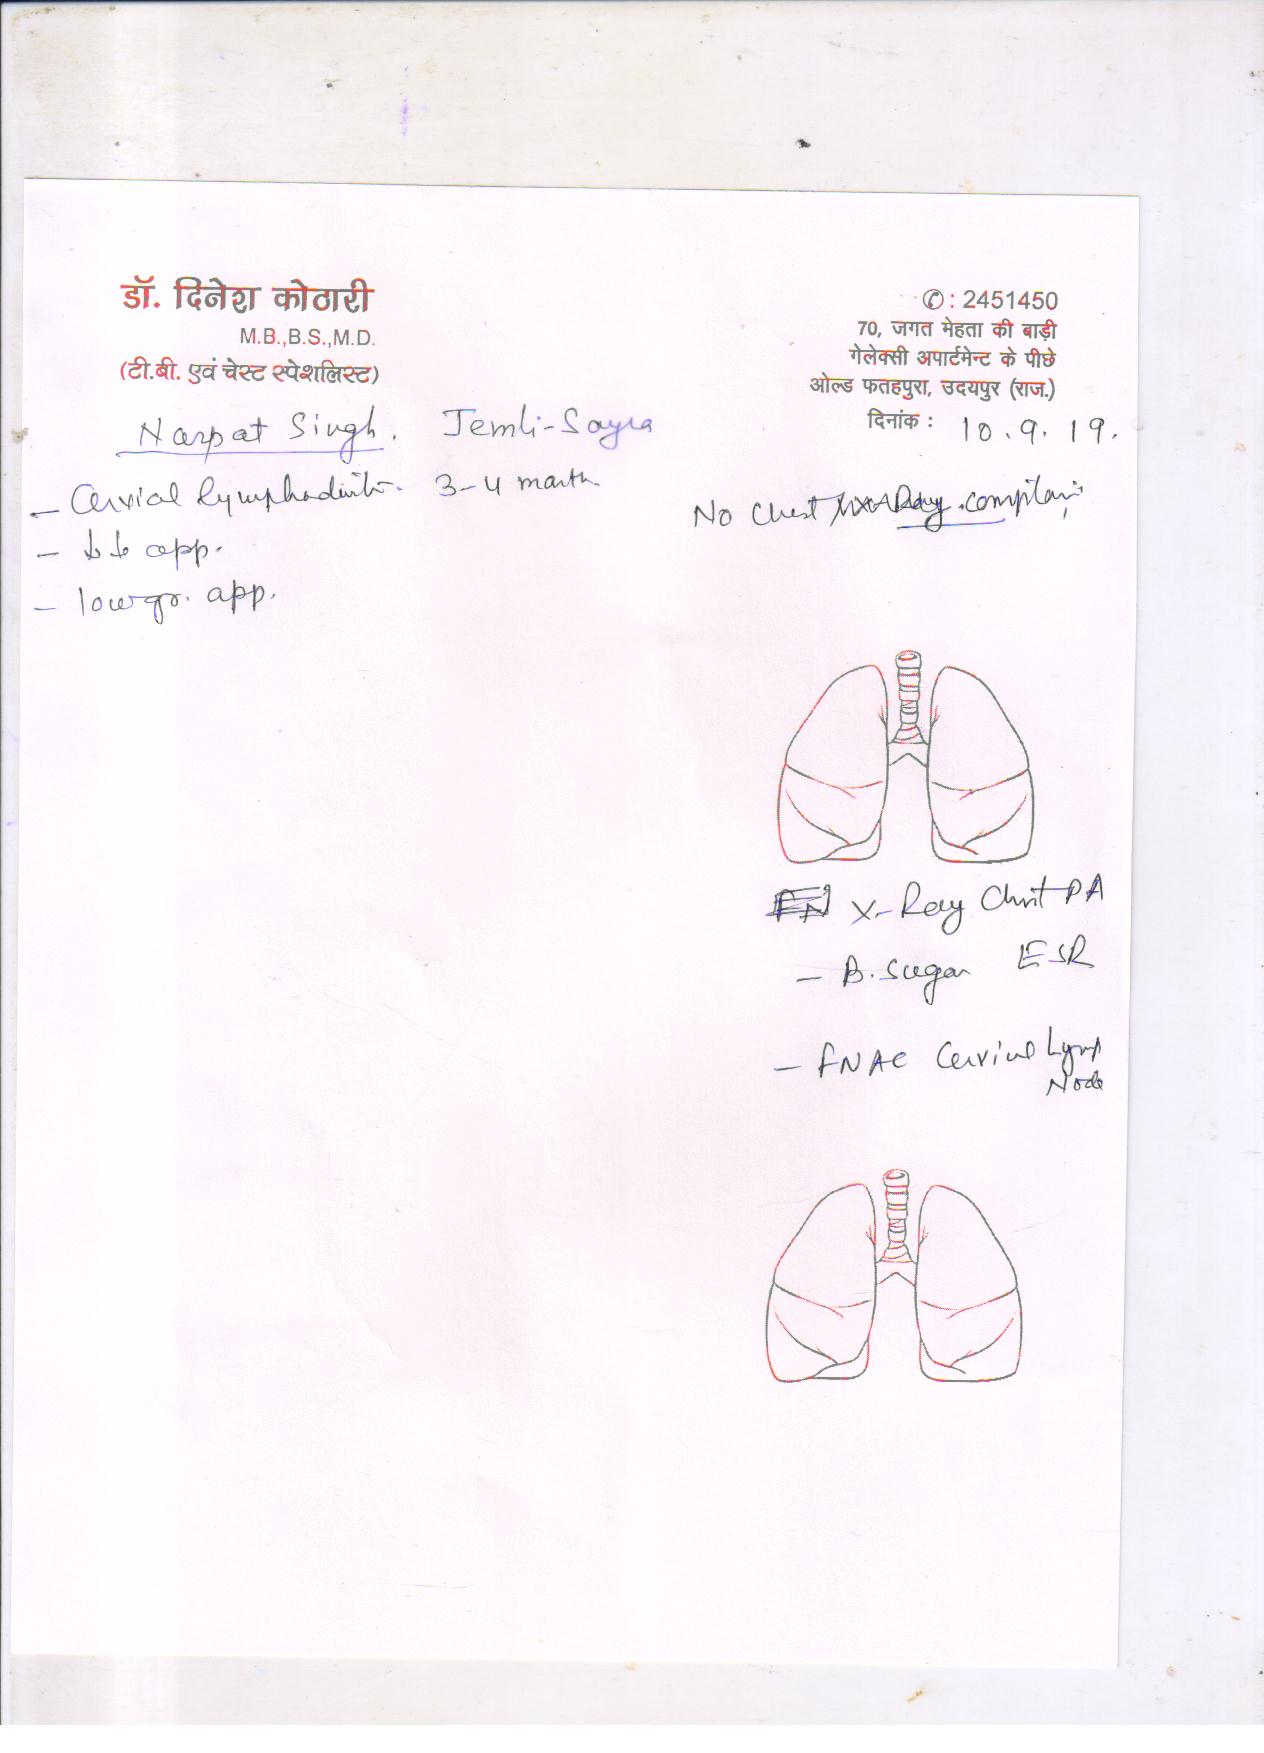 डॉ. दिनेश कोठारी
M.B.,B.S.,M.D.
(टी.बी. एवं चेस्ट स्पेशलिस्ट)
✆: 2451450
70, जगत मेहता की बाड़ी
गेलेक्सी अपार्टमेन्ट के पीछे
ओल्ड फतहपुरा, उदयपुर (राज.)
दिनांक : 10.9.19.
Narpat Singh. Jemli-Sayra
- Cervial lymphadinitis. 3-4 month
No Chest complain
- ↓↓ app.
- low gr. app.
X-Ray Chest PA
- B. Sugar ESR
- FNAC Cervical Lymp
Node